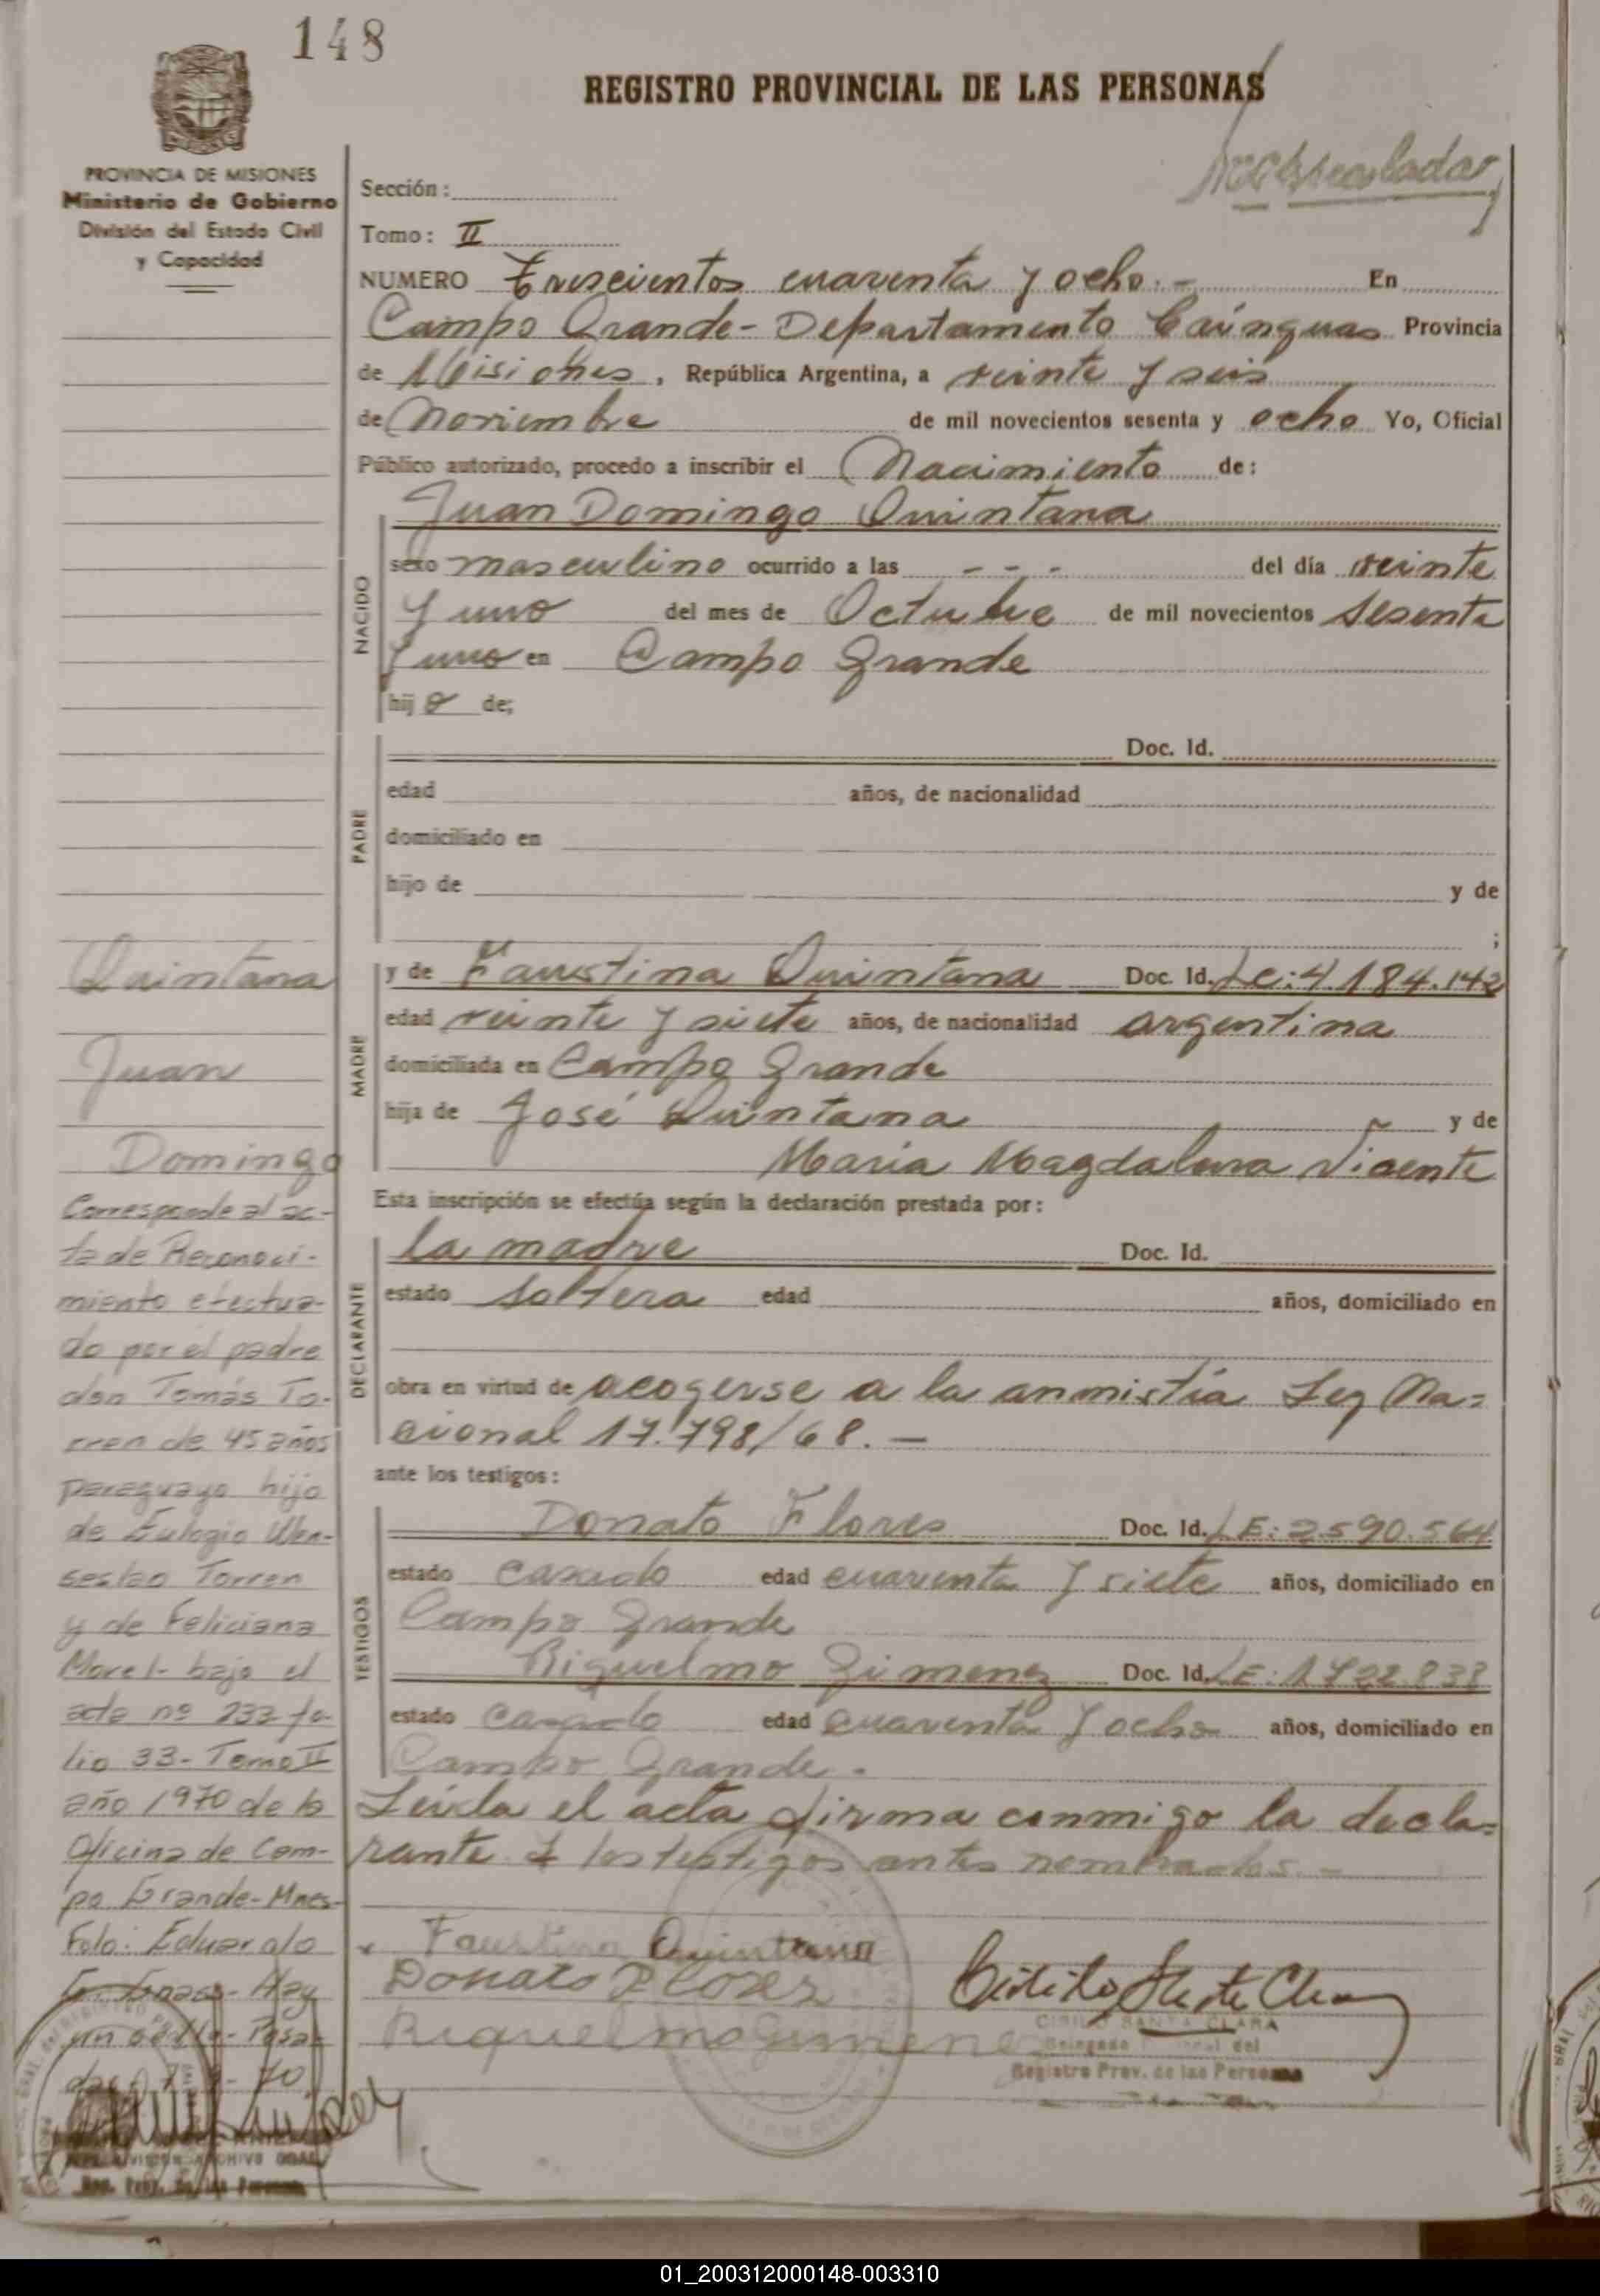 148
REGISTRO PROVINCIAL DE LAS PERSONAS
PROVINCIA DE MISIONES
Ministerio de Gobierno
División del Estado Civil
y Capacidad
Sección:
Tomo: II
NUMERO Trescientos cuarenta y ocho.- En
Campo Grande- Departamento Cainguas Provincia
de Misiones, República Argentina, a veinte y seis
de Noviembre de mil novecientos sesenta y ocho Yo, Oficial
Público autorizado, procedo a inscribir el Nacimiento de:
Juan Domingo Quintana
NACIDO
sexo masculino ocurrido a las - - - del día veinte
y uno del mes de Octubre de mil novecientos sesenta
y uno en Campo Grande
hijo de;
PADRE
Doc. Id.
edad años, de nacionalidad
domiciliado en
hijo de y de
;
MADRE
y de Faustina Quintana Doc. Id. Lc: 4.184.142
edad veinte y siete años, de nacionalidad argentina
domiciliada en Campo Grande
hija de José Quintana y de
Maria Magdalena Vicente
Esta inscripción se efectúa según la declaración prestada por:
DECLARANTE
la madre Doc. Id.
estado soltera edad años, domiciliado en
obra en virtud de acogerse a la anmistía Ley Na=
cional 17.798/68.-
ante los testigos:
TESTIGOS
Donato Flores Doc. Id. LE: 2590.564
estado casado edad cuarenta y siete años, domiciliado en
Campo Grande
Riquelmo Gimenez Doc. Id. LE:
estado casado edad cuarenta y ocho años, domiciliado en
Campo Grande.
Leída el acta firma conmigo la decla=
rante y los testigos antes nombrados.-
Faustina Quintana
Donato Flores
Riquelmo Gimenez
CIRILO SANTA CLARA
Delegado del
Registro Prov. de las Personas
Quintana
Juan
Domingo
Corresponde al ac-
ta de Reconoci-
miento efectua-
do por el padre
don Tomás To-
rren de 45 años
paraguayo hijo
de Eulogio Wen-
seslao Torren
y de Feliciana
Morel- bajo el
acta nº 233 fo-
lio 33- Tomo II
año 1970 de la
Oficina de Cam-
po Grande- Mnes-
Fdo: Eduardo
Hay
un sello- Posa-
das
70
ARCHIVO GRAL
Reg. Prov. de las Personas
01_200312000148-003310